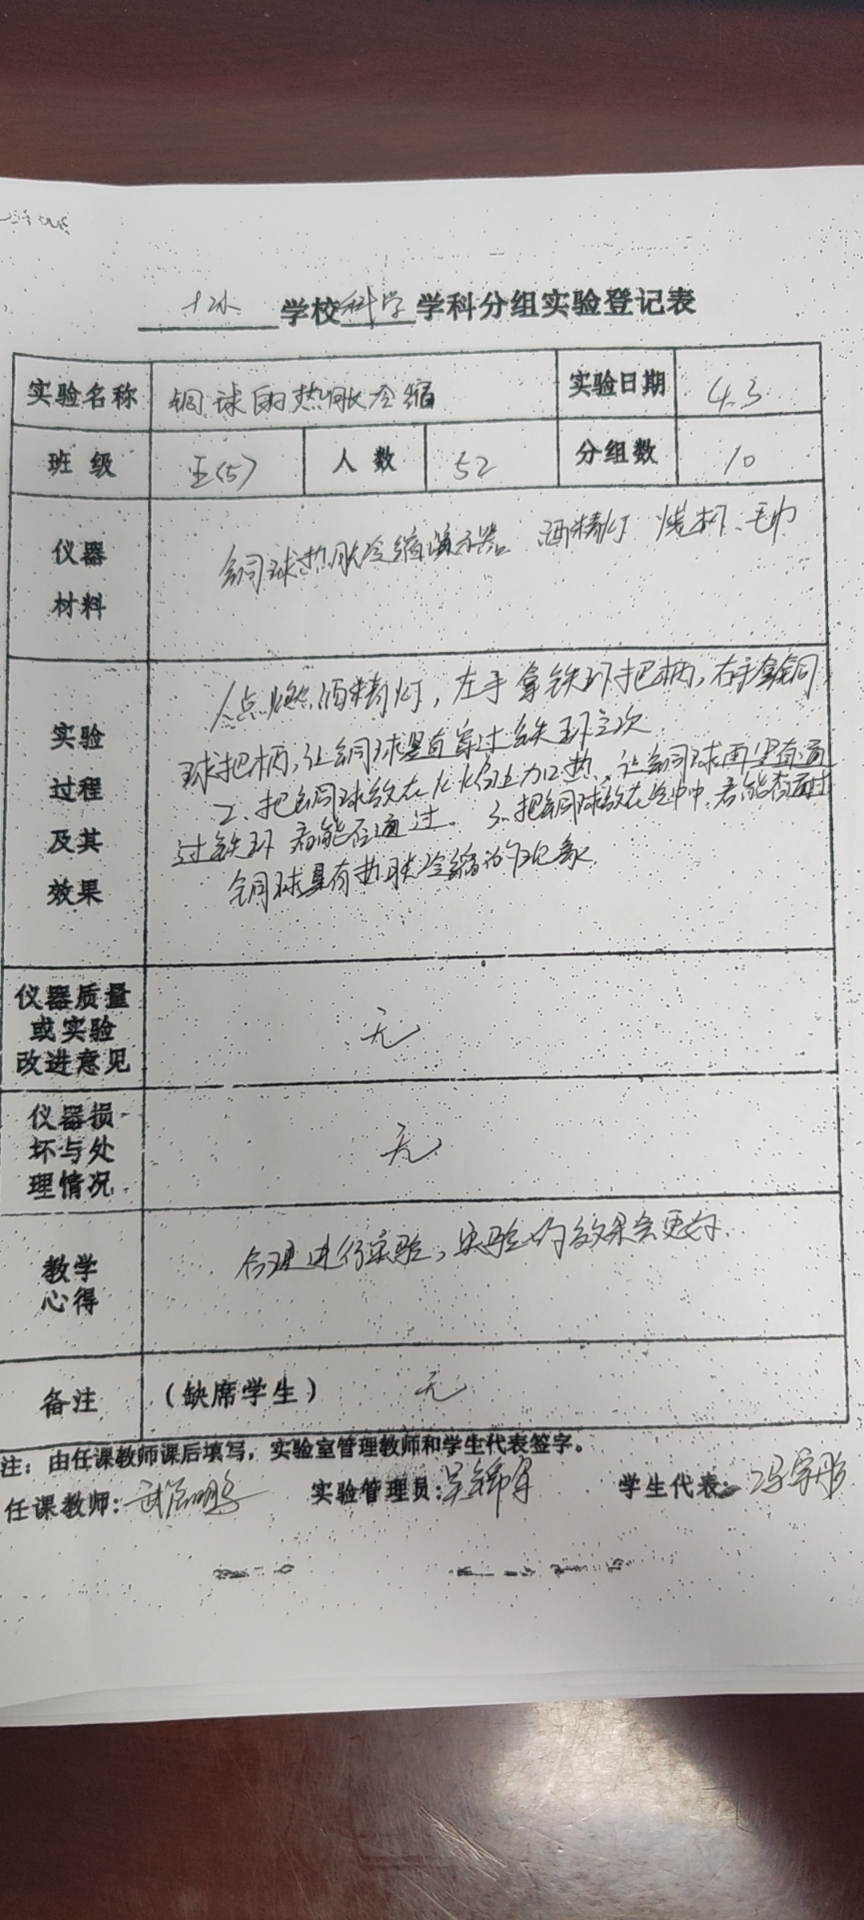 学校科学学科分组实验登记表
实验名称 铜球的热胀冷缩 实验日期 4.3
班级 五(5) 人数 52 分组数 10
仪器
材料
铜球热胀冷缩演示器、酒精灯 烧杯、毛巾
实验
过程
及其
效果
1、点燃酒精灯，左手拿铁环把柄，右手拿铜
球把柄，让铜球垂直穿过铁环三次
2、把铜球放在火焰上加热，让铜球再垂直通
过铁环 看能否通过。3、把铜球放在空中中，看能否通过
铜球具有热胀冷缩的现象
仪器质量
或实验
改进意见
无
仪器损
坏与处
理情况
无
教学
心得
合理进行实验，实验的效果会更好.
备注 （缺席学生） 无
注：由任课教师课后填写，实验室管理教师和学生代表签字。
任课教师： 实验管理员： 学生代表：